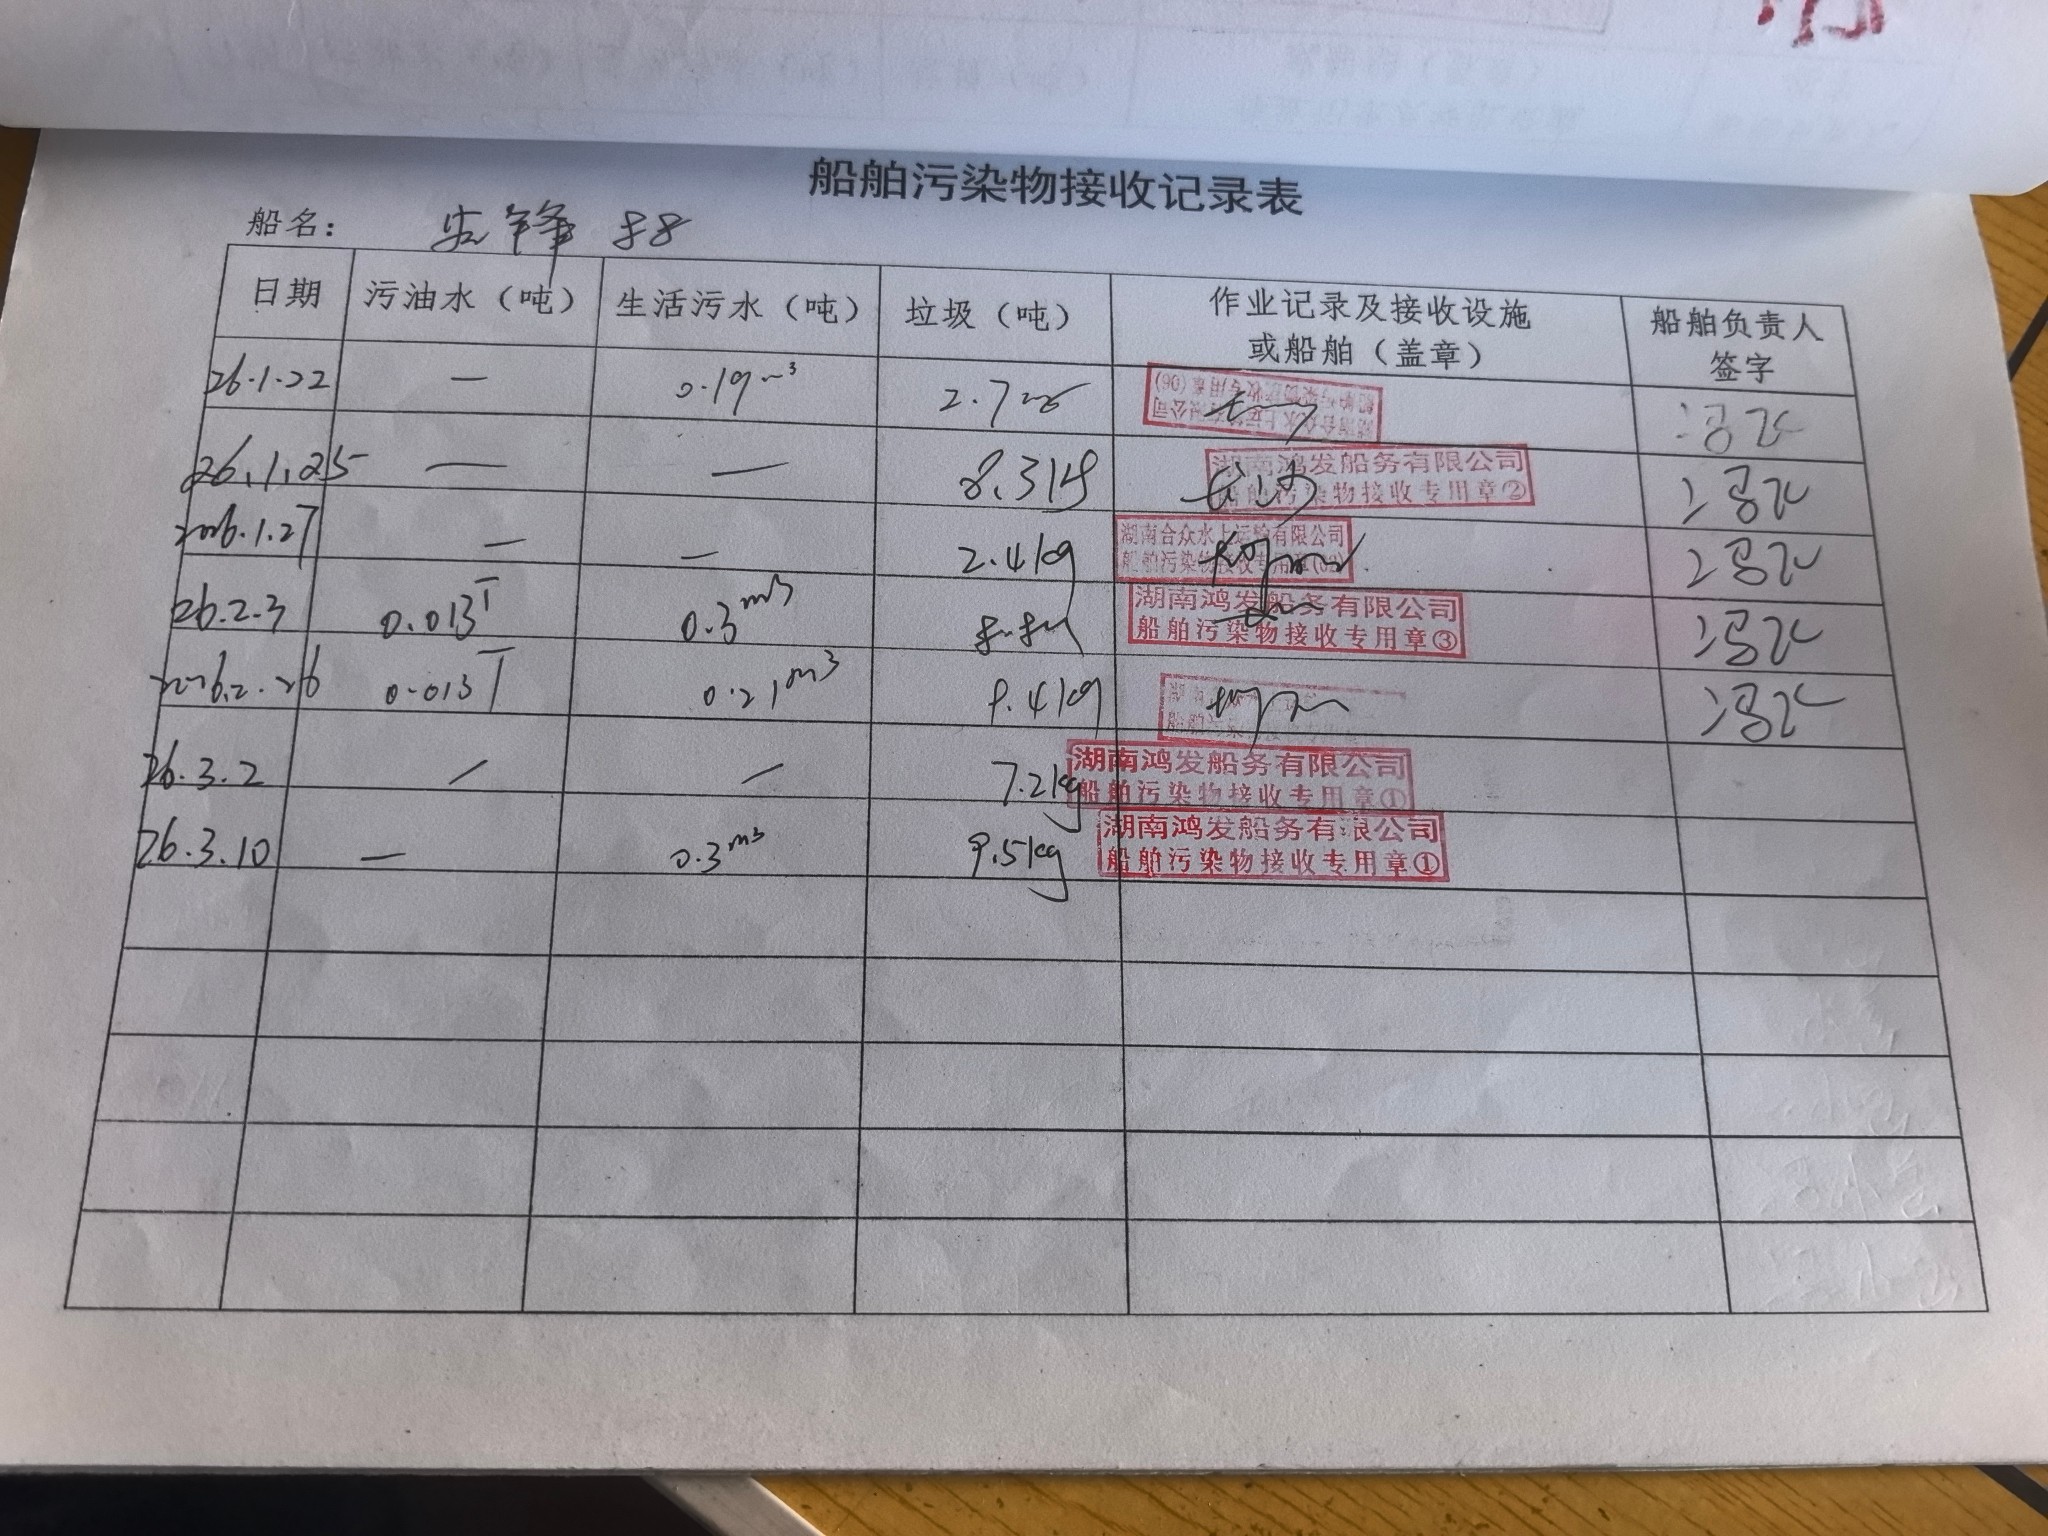 船舶污染物接收记录表
船名： 锋 88
日期 污油水（吨） 生活污水（吨） 垃圾（吨） 作业记录及接收设施或船舶（盖章） 船舶负责人签字
26.1.22 — 0.19m³ 2.7 湖南合众水上运输有限公司 船舶污染物接收专用章(06)
26.1.25 — — 8.3kg 长沙 湖南鸿发船务有限公司 船舶污染物接收专用章②
2026.1.27 — — 2.4kg 湖南合众水上运输有限公司 船舶污染物接收专用章
26.2.3 0.013T 0.3m³ 湖南鸿发船务有限公司 船舶污染物接收专用章③
2026.2.26 0.013T 0.21m³ 9.4kg
26.3.2 / / 7.2kg 湖南鸿发船务有限公司 船舶污染物接收专用章①
26.3.10 — 0.3m³ 9.5kg 湖南鸿发船务有限公司 船舶污染物接收专用章①